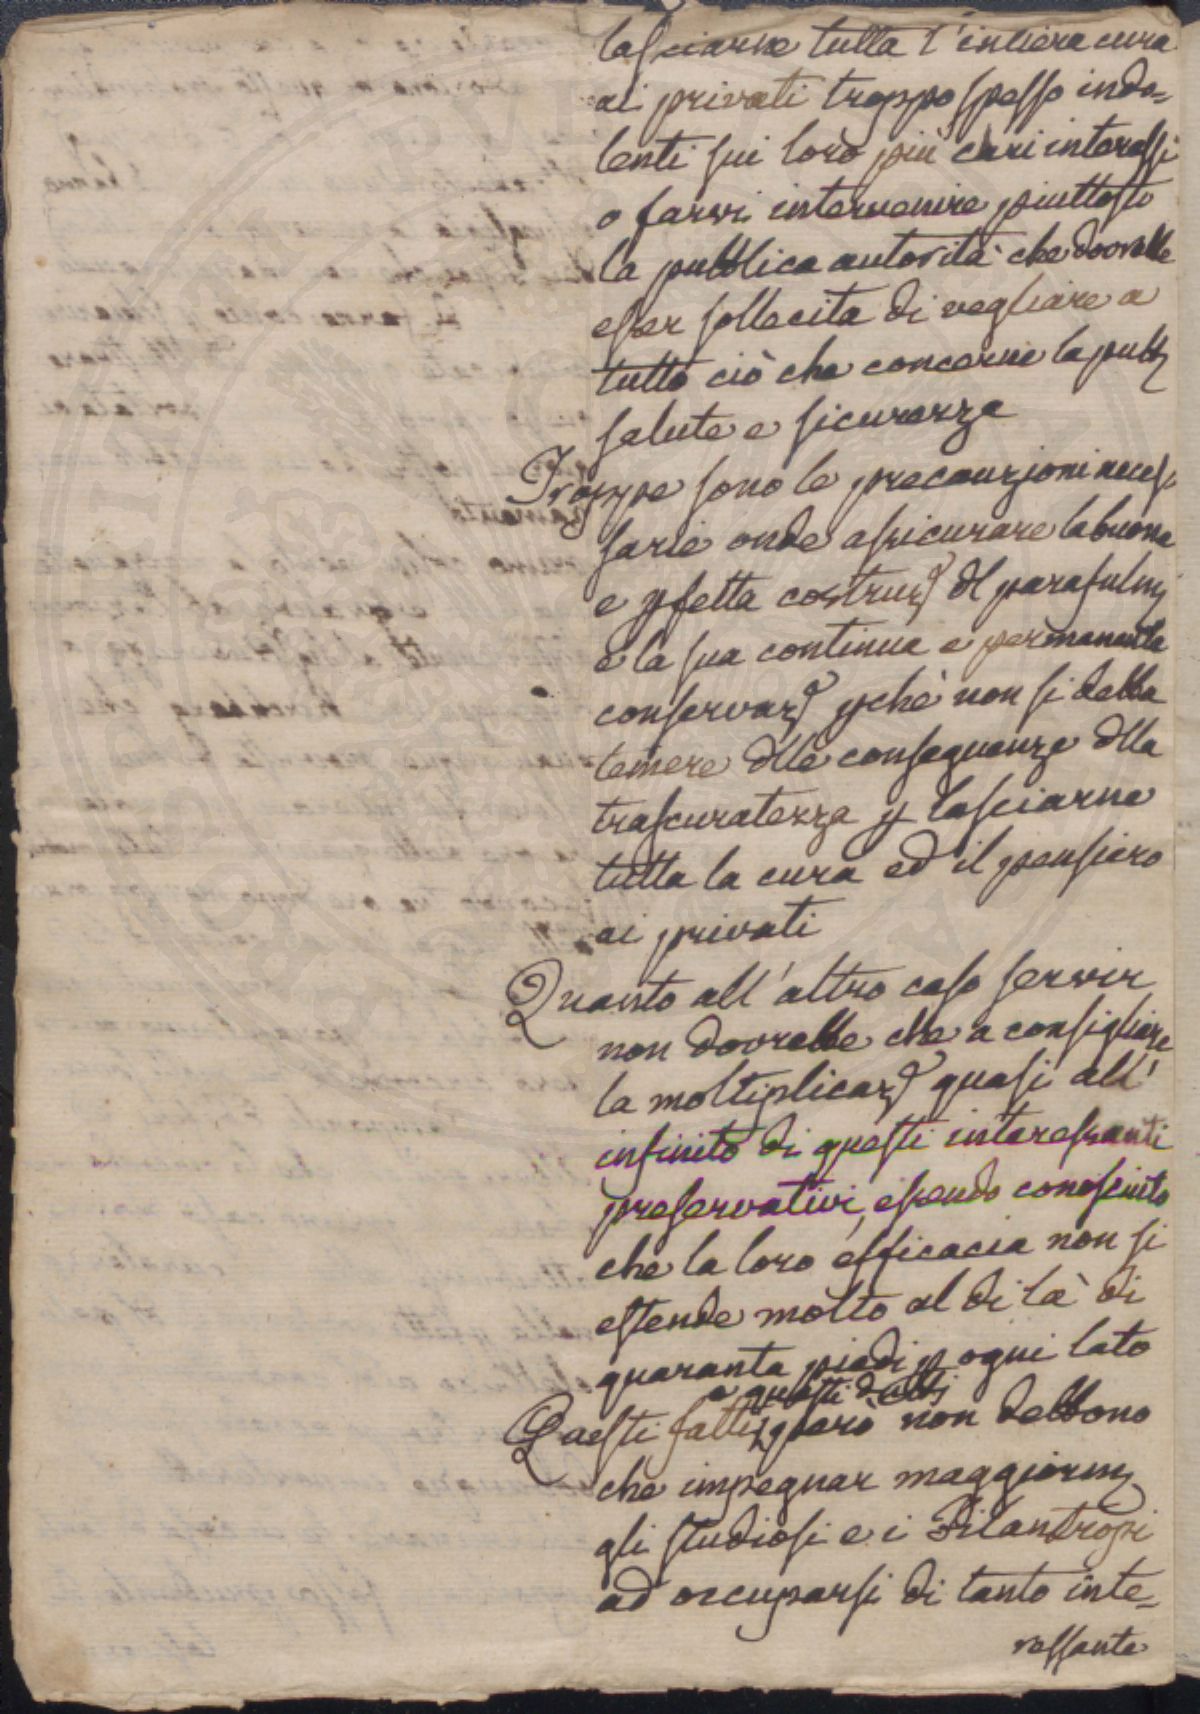 lasciarne tutta l'intiera cura
ai privati troppo spesso indo=
lenti sui loro più cari interessi
o farvi intervenire piuttosto
la pubblica autorità che dovrebbe
esser sollecita di vegliare a
tutto ciò che concerne la pubb
salute e sicurezza
Troppe sono le precauzioni neces
sarie onde assicurare la buona
e pfetta costruz del parafulm
e la sua continua e permanente
conservaz pchè non si debba
temere dlle conseguenze dlla
trascuratezza p lasciarne
tutta la cura ed il pensiero
ai privati
Quanto all'altro caso servir
non dovrebbe che a consigliare
la moltiplicaz quasi all'
infinito di questi interessanti
preservativi, essendo conosciuto
che la loro efficacia non si
estende molto al di là di
quaranta piedi p ogni lato
e questi dubbj
Questi fatti però non debbono
che impegnar maggiorm
gli studiosi e i Filantropi
ad occuparsi di tanto inte=
ressante